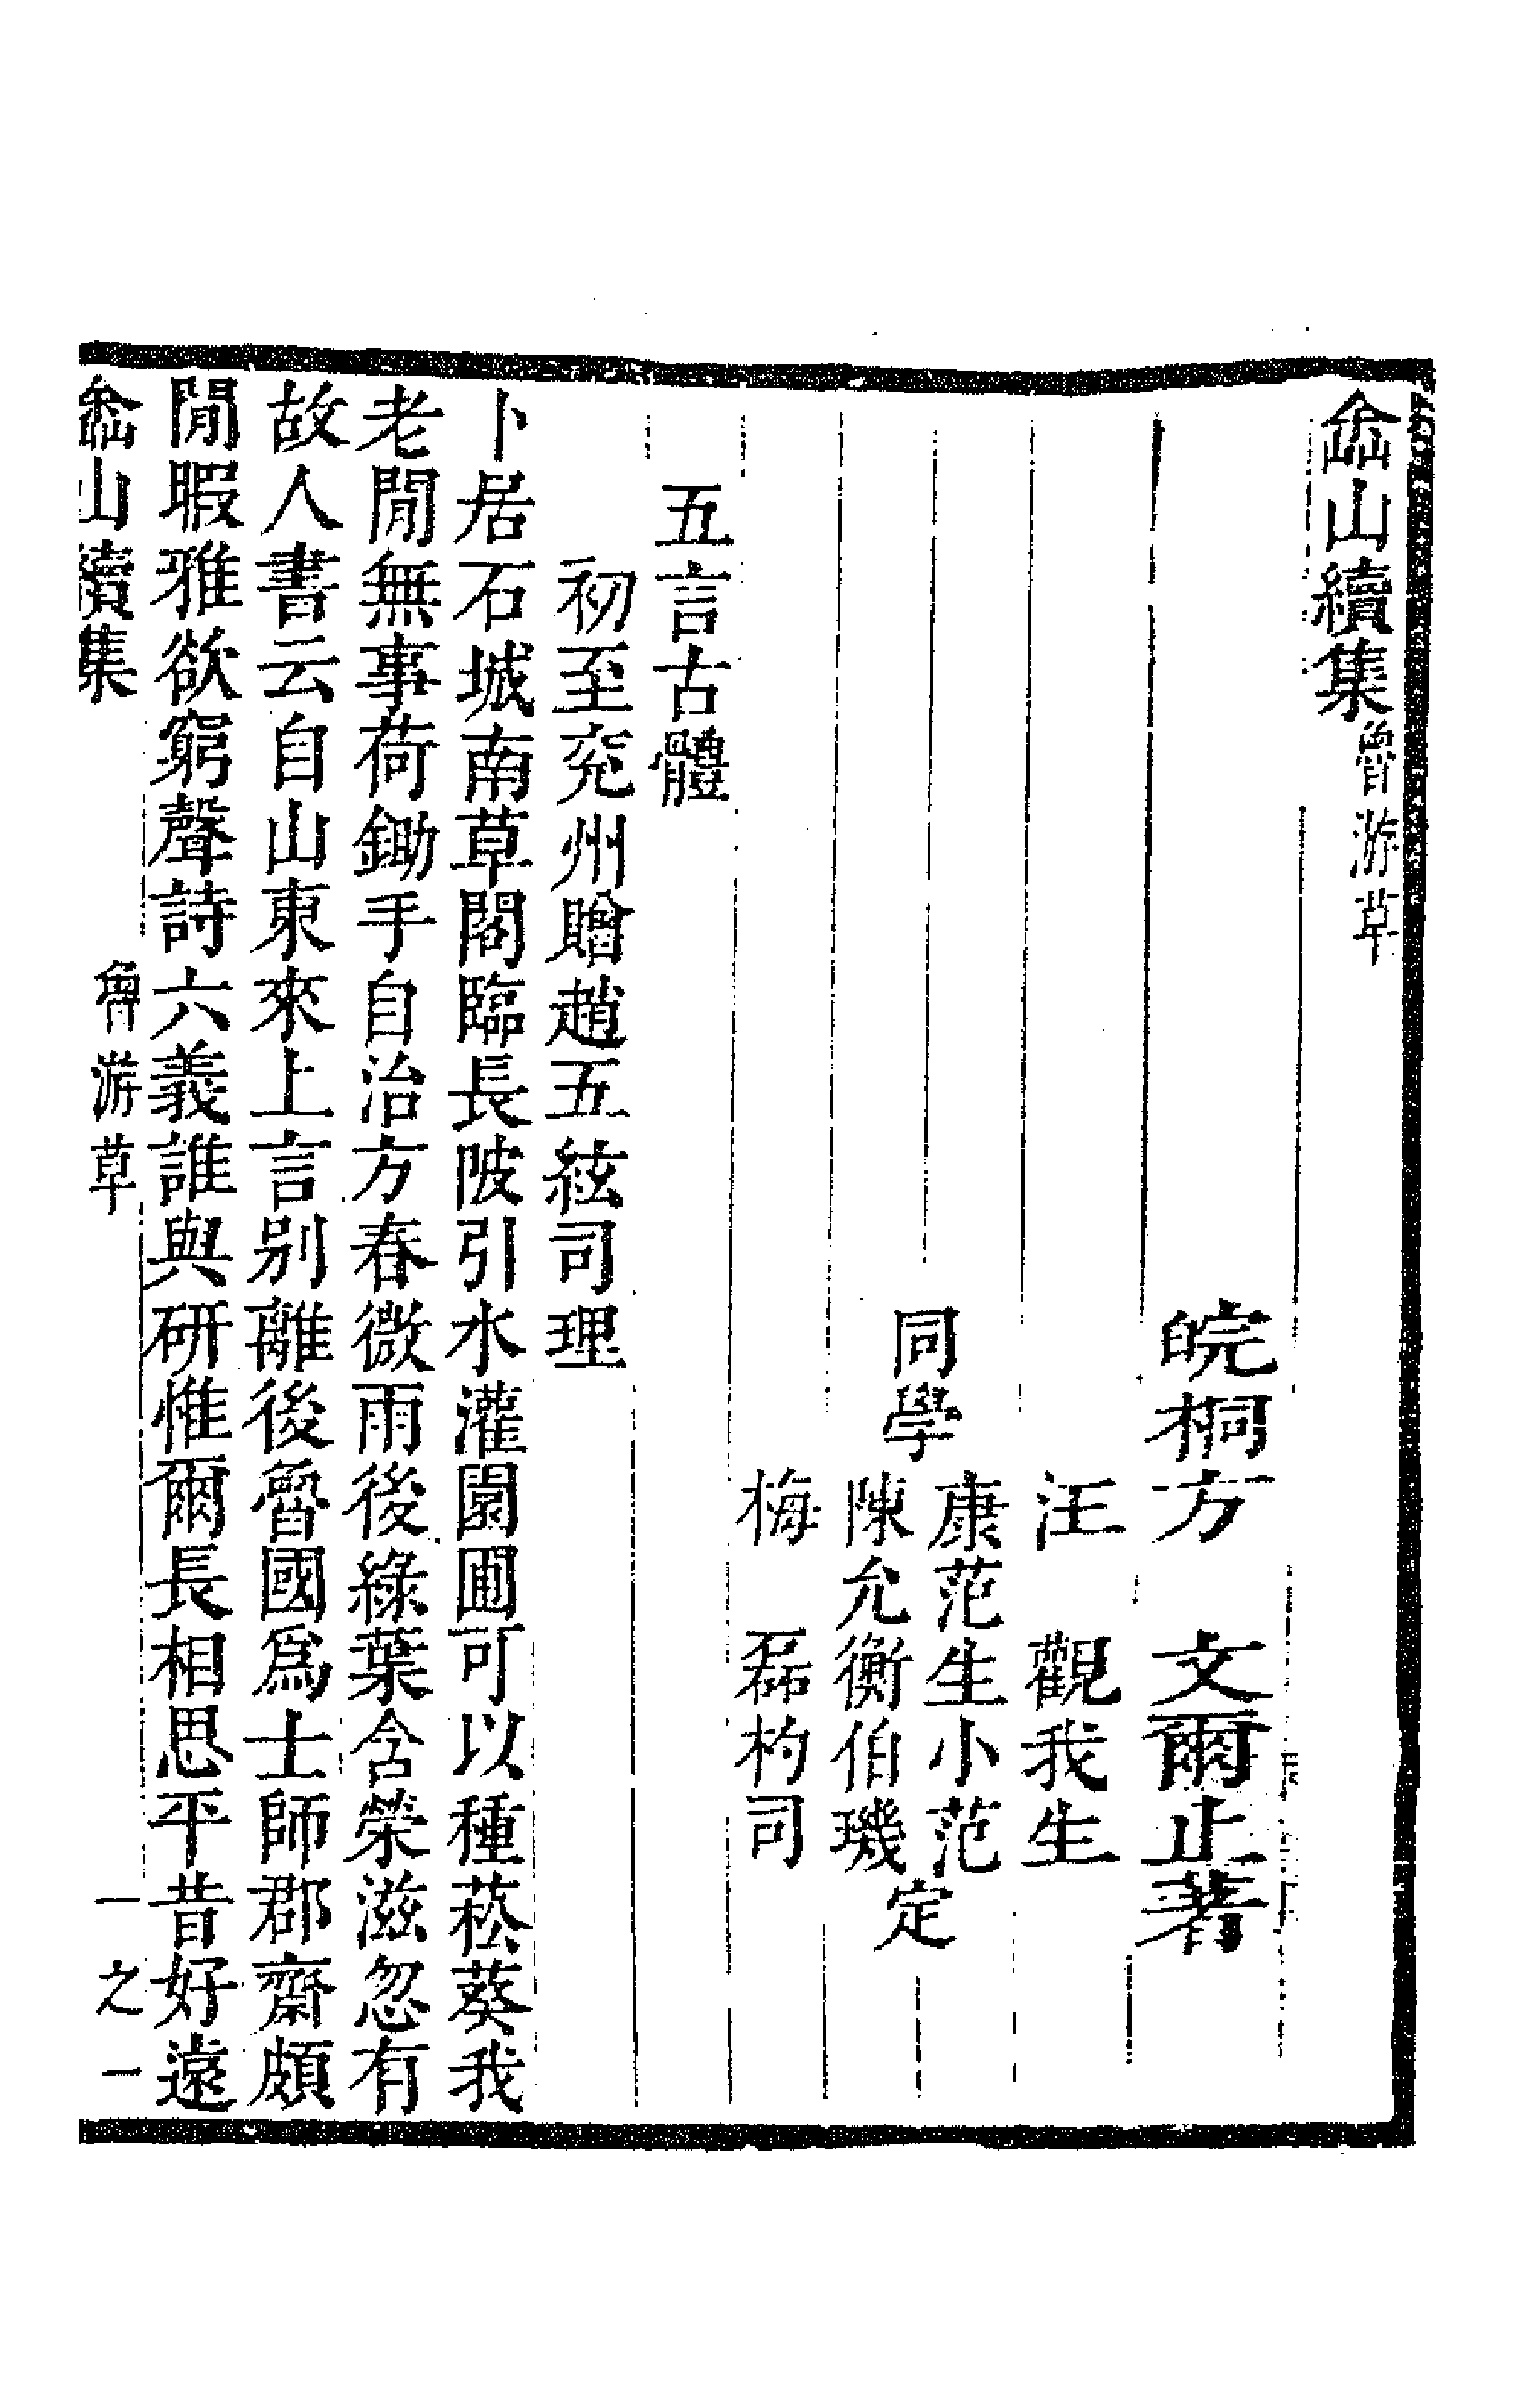 嵞山續集魯游草
皖桐方　文爾止著
汪　觀我生
同學
康范生小范
陳允衡伯璣
梅　磊杓司
定
五言古體
初至兖州贈趙五絃司理
卜居石城南草閣臨長陂引水灌園圃可以種菘葵我
老閒無事荷鋤手自治方春微雨後綠葉含榮滋忽有
故人書云自山東來上言別離後魯國爲士師郡齋頗
閒暇雅欲窮聲詩六義誰與研惟爾長相思平昔好遠
嵞山續集　魯游草　一之一